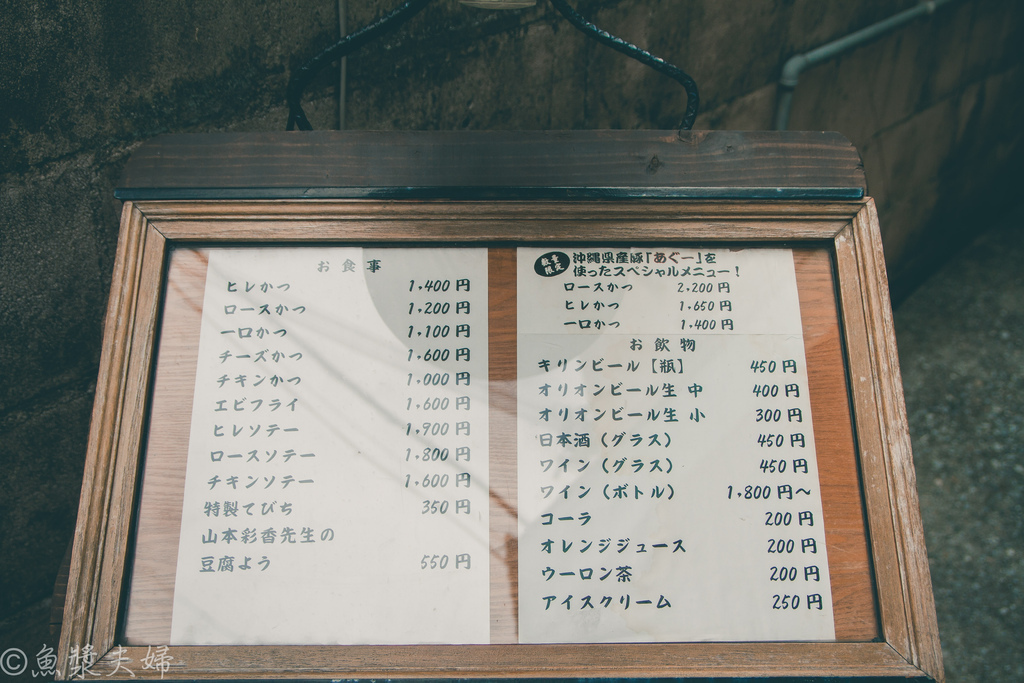 お食事
ヒレかつ 1,400円
ロースかつ 1,200円
一口かつ 1,100円
チーズかつ 1,600円
チキンかつ 1,000円
エビフライ 1,600円
ヒレソテー 1,900円
ロースソテー 1,800円
チキンソテー 1,600円
特製てびち 350円
山本彩香先生の
豆腐よう 550円
数量限定
沖縄県産豚「あぐー」を
使ったスペシャルメニュー！
ロースかつ 2,200円
ヒレかつ 1,650円
一口かつ 1,400円
お飲物
キリンビール【瓶】 450円
オリオンビール生 中 400円
オリオンビール生 小 300円
日本酒（グラス） 450円
ワイン（グラス） 450円
ワイン（ボトル） 1,800円〜
コーラ 200円
オレンジジュース 200円
ウーロン茶 200円
アイスクリーム 250円
©魚漿夫婦